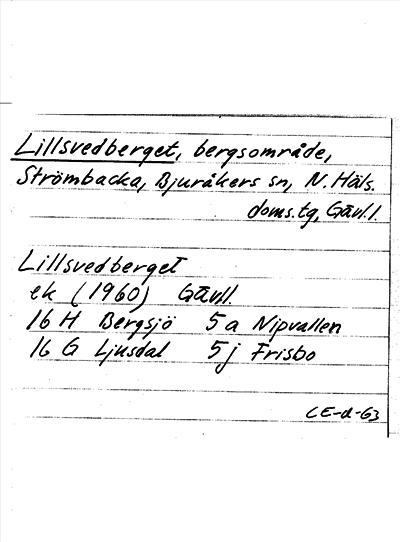 Lillsvedberget, bergsområde,
Strömbacka, Bjuråkers sn, N. Häls.
doms.tg, Gävl. l
Lillsvedberget
ek (1960) Gävl.l.
16 H Bergsjö 5 a Nipvallen
16 G Ljusdal 5 j Frisbo